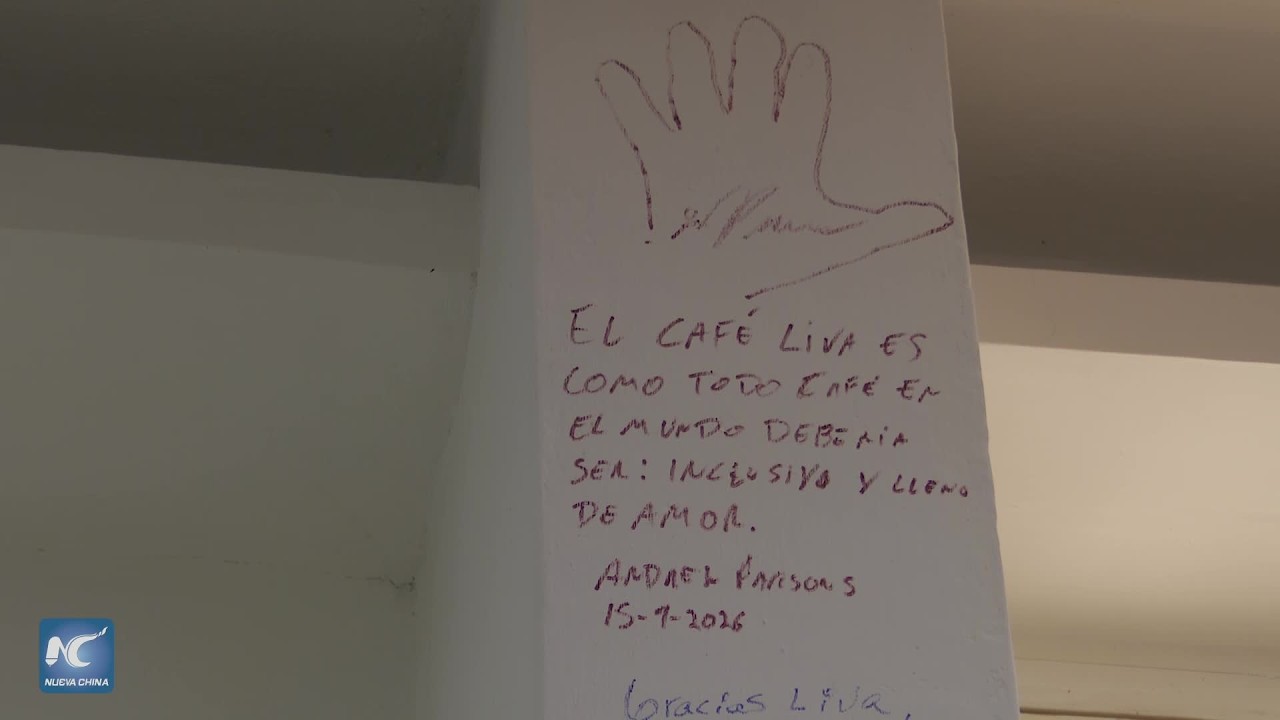 EL CAFÉ LIVA ES
COMO TODO CAFÉ EN
EL MUNDO DEBERIA
SER: INCLUSIVO Y LLENO
DE AMOR.
PARSONS
2026
Gracias Liva,
NC
NUEVA CHINA